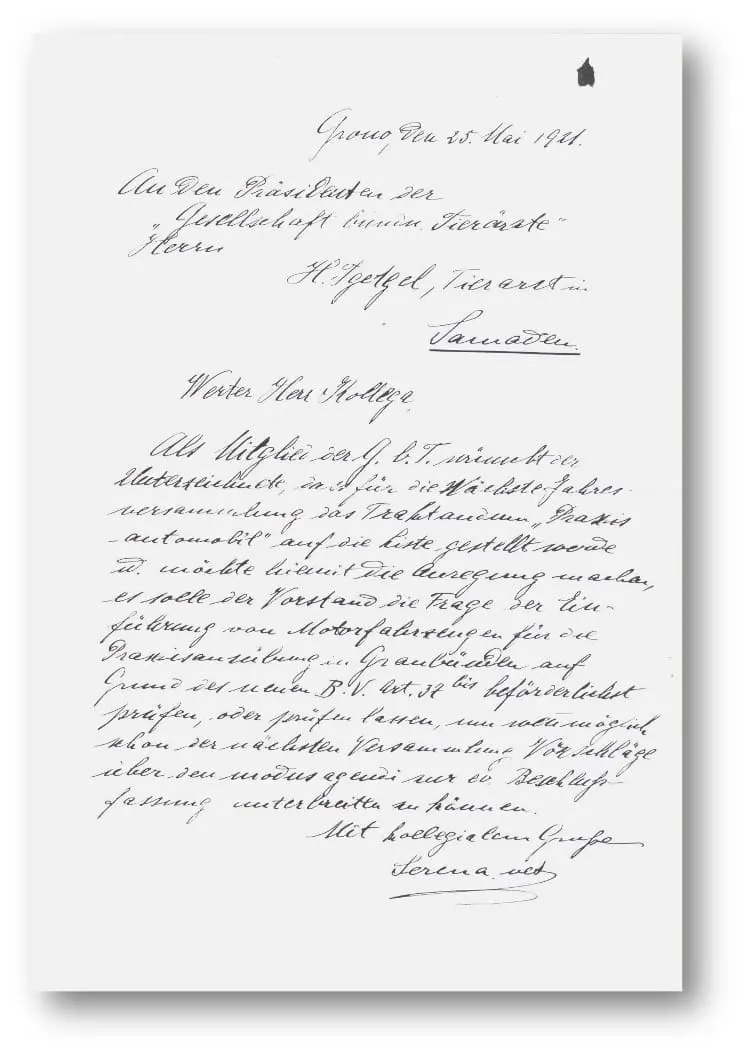 Grono, den 25. Mai 1921.
An den Präsidenten der
„Gesellschaft bündn. Tierärzte“
Herrn
H. Tgetgel, Tierarzt in
Samaden.
Werter Herr Kollega,
Als Mitglied der G. b. T. wünscht der
Unterzeichnete, dass für die Nächste Jahres-
versammlung das Traktandum „Praxis
-automobil“ auf die Liste gestellt werde
u. möchte hiemit die Anregung machen,
es solle der Vorstand die Frage der Ein-
führung von Motorfahrzeugen für die
Praxisausübung in Graubünden auf
Grund des neuen B. V. Art. 37 bis beförderlichst
prüfen, oder prüfen lassen, um wenn möglich
schon der nächsten Versammlung Vorschläge
über den modus agendi zur ev. Beschluß-
fassung unterbreiten zu können.
Mit kollegialem Gruße
Serena. vet